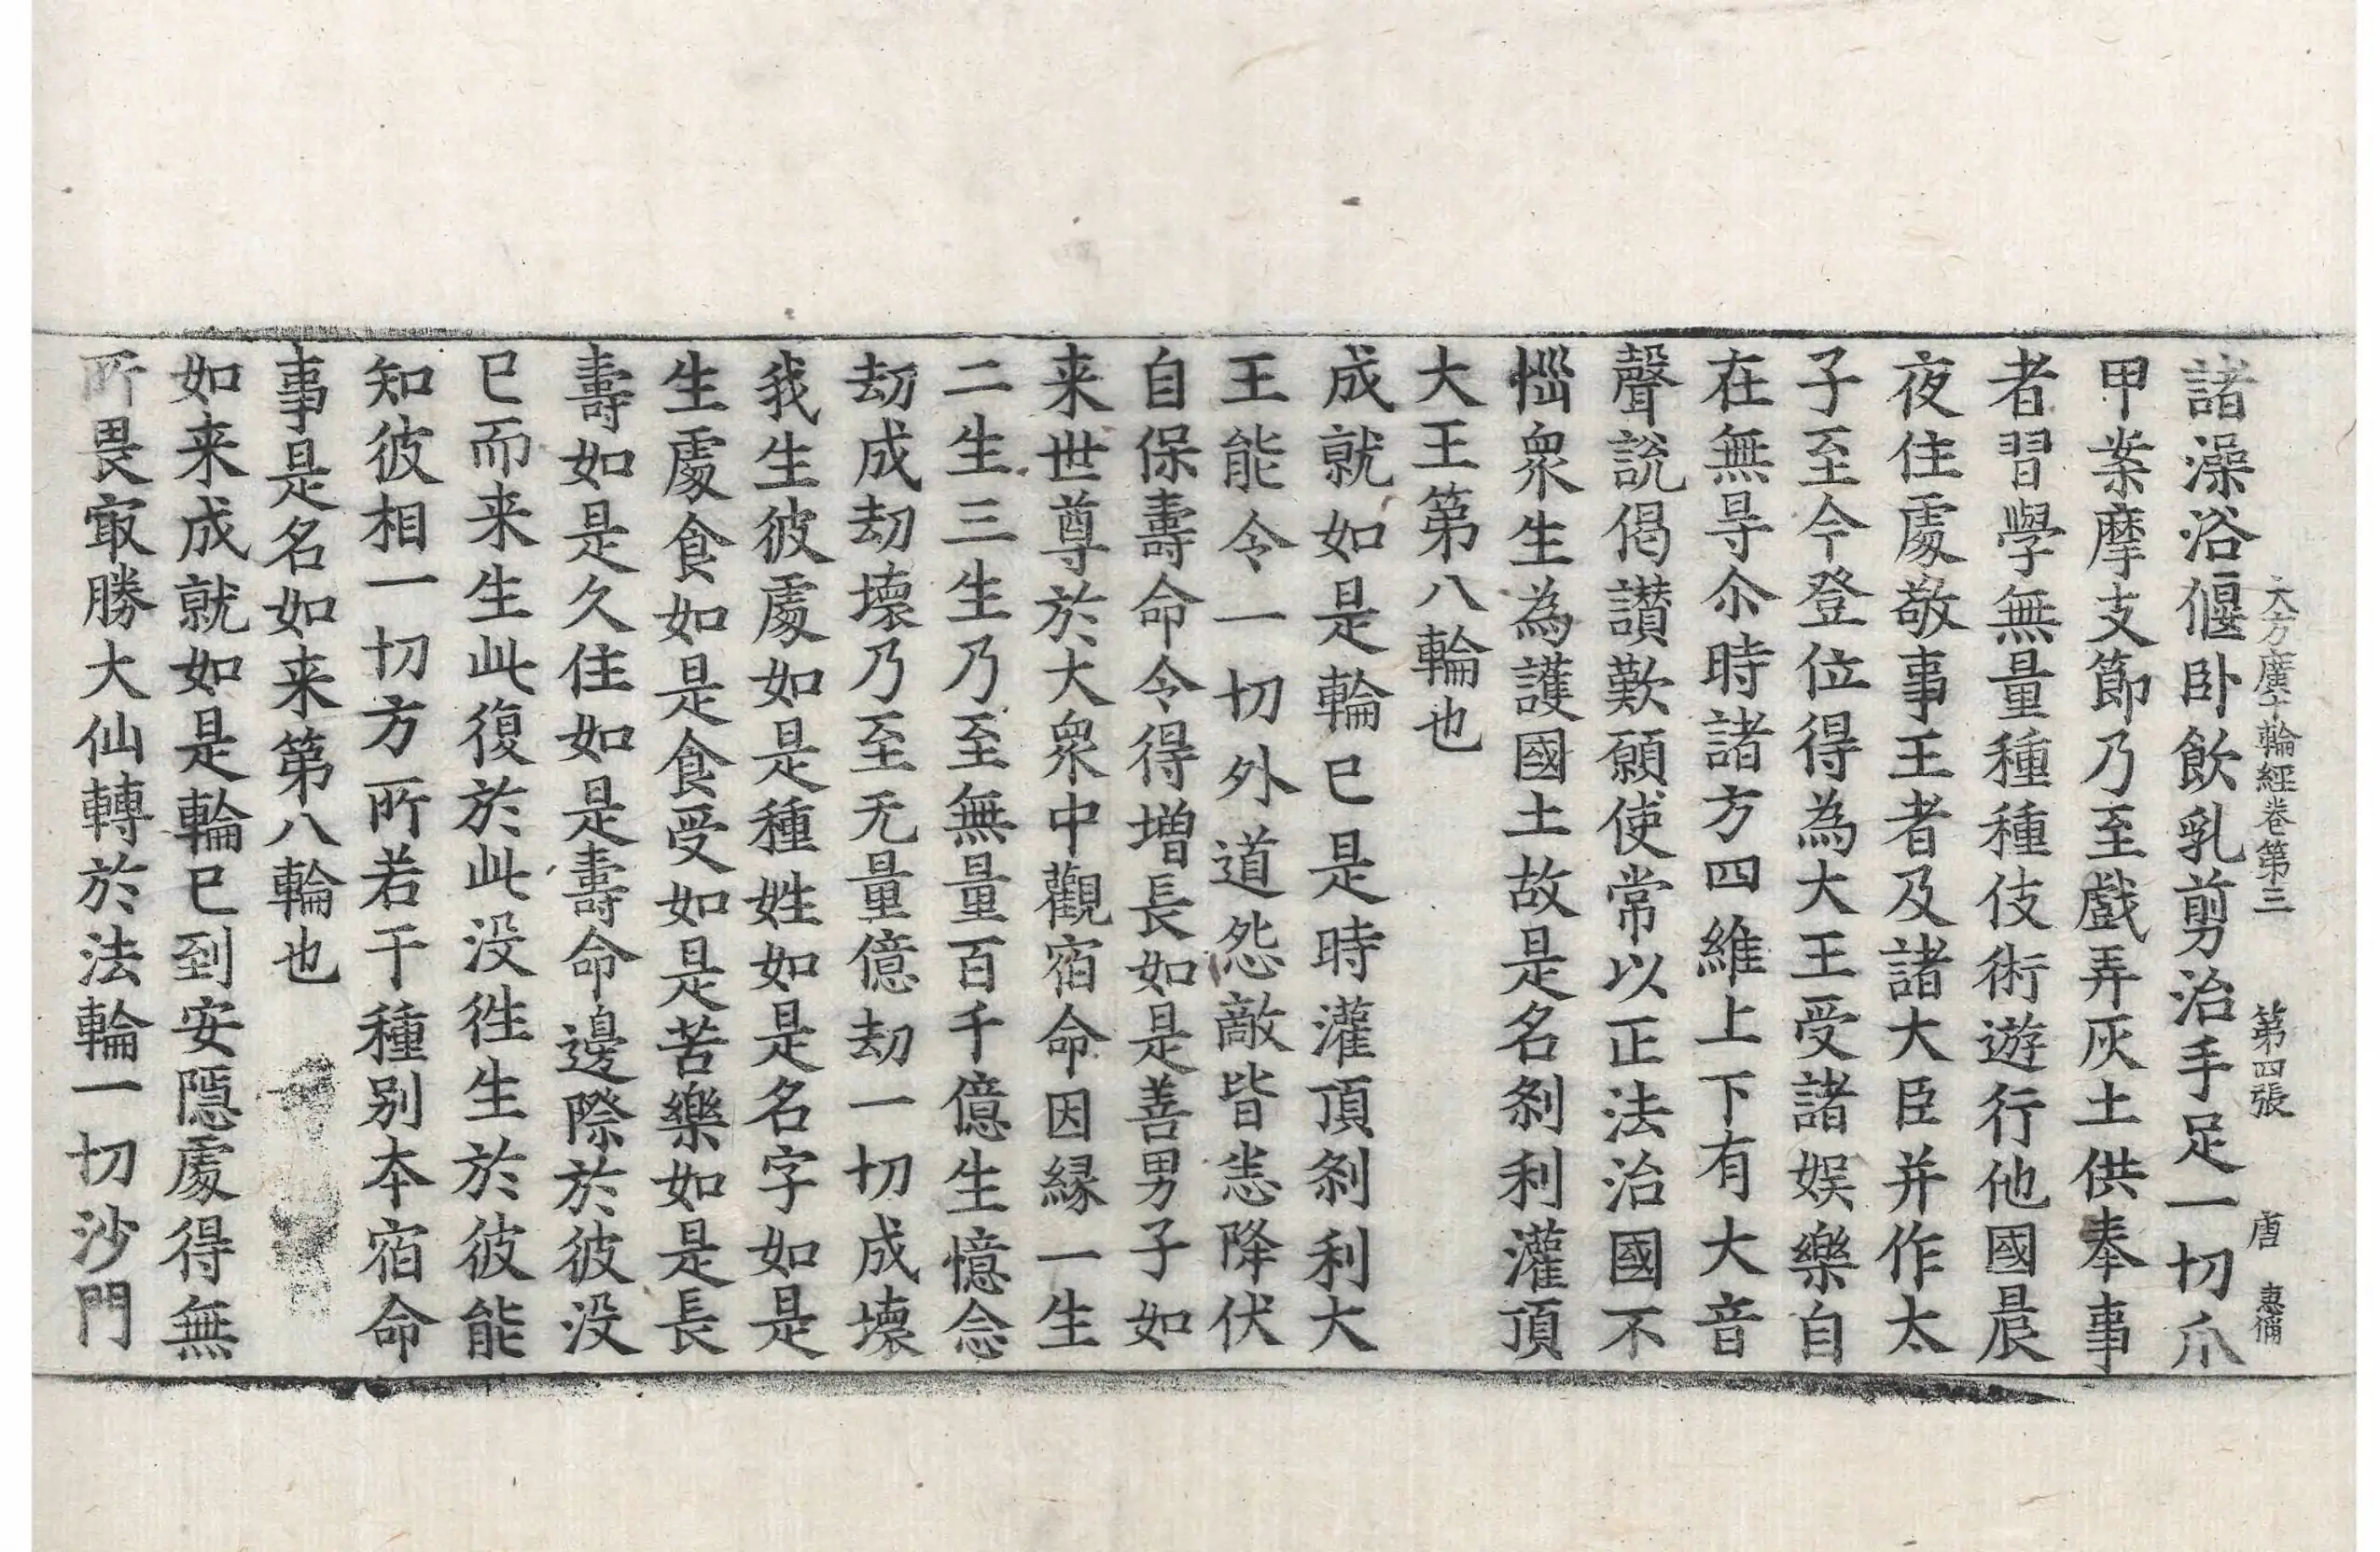 大方廣十輪經卷第三 第四張 唐 惠俻
諸澡浴偃卧飲乳剪治手足一切爪
甲案摩支節乃至戲弄灰土供奉事
者習學無量種種伎術遊行他國晨
夜住處敬事王者及諸大臣并作太
子至今登位得為大王受諸娛樂自
在無㝵尒時諸方四維上下有大音
聲說偈讃歎願使常以正法治國不
惱衆生為護國土故是名剎利灌頂
大王第八輪也
成就如是輪已是時灌頂剎利大
王能令一切外道怨敵皆恙降伏
自保壽命令得增長如是善男子如
来世尊於大衆中觀宿命因縁一生
二生三生乃至無量百千億生憶念
劫成劫壞乃至无量億劫一切成壞
我生彼處如是種姓如是名字如是
生處食如是食受如是苦樂如是長
壽如是久住如是壽命邊際於彼没
已而来生此復於此没徃生於彼能
知彼相一切方所若干種别本宿命
事是名如来第八輪也
如来成就如是輪已到安隱處得無
所畏㝡勝大仙轉於法輪一切沙門